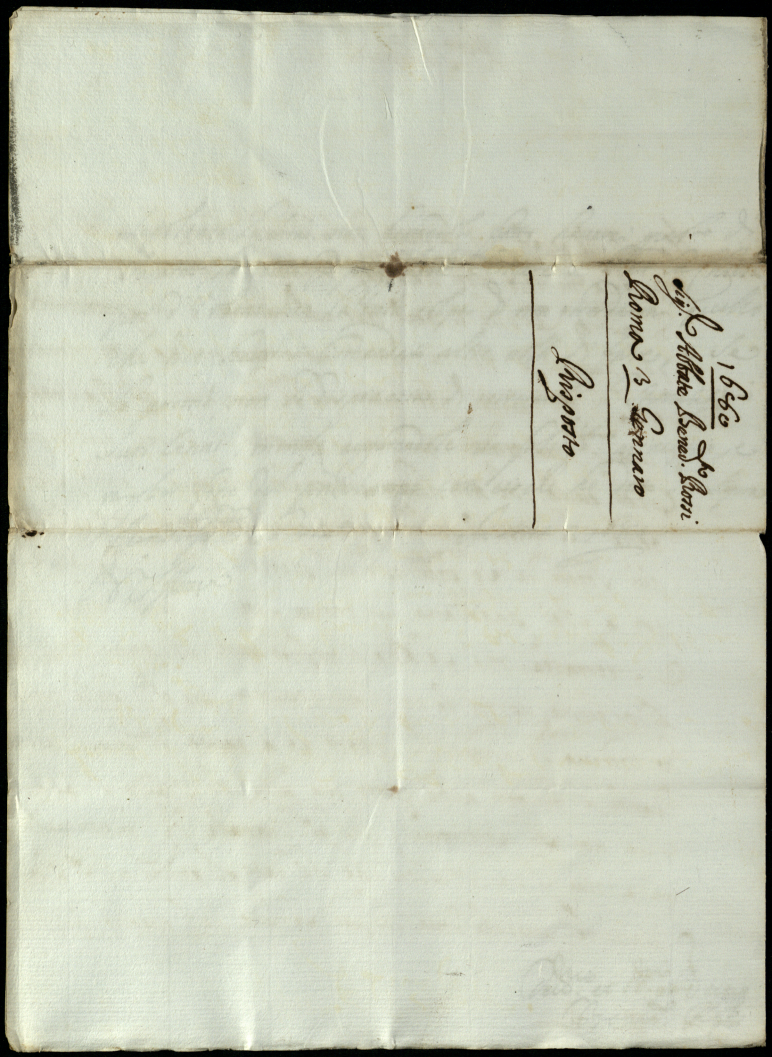 1680
Sig.r Abbate Bened.to Rossi
Roma 3 Gennaro
Risposto